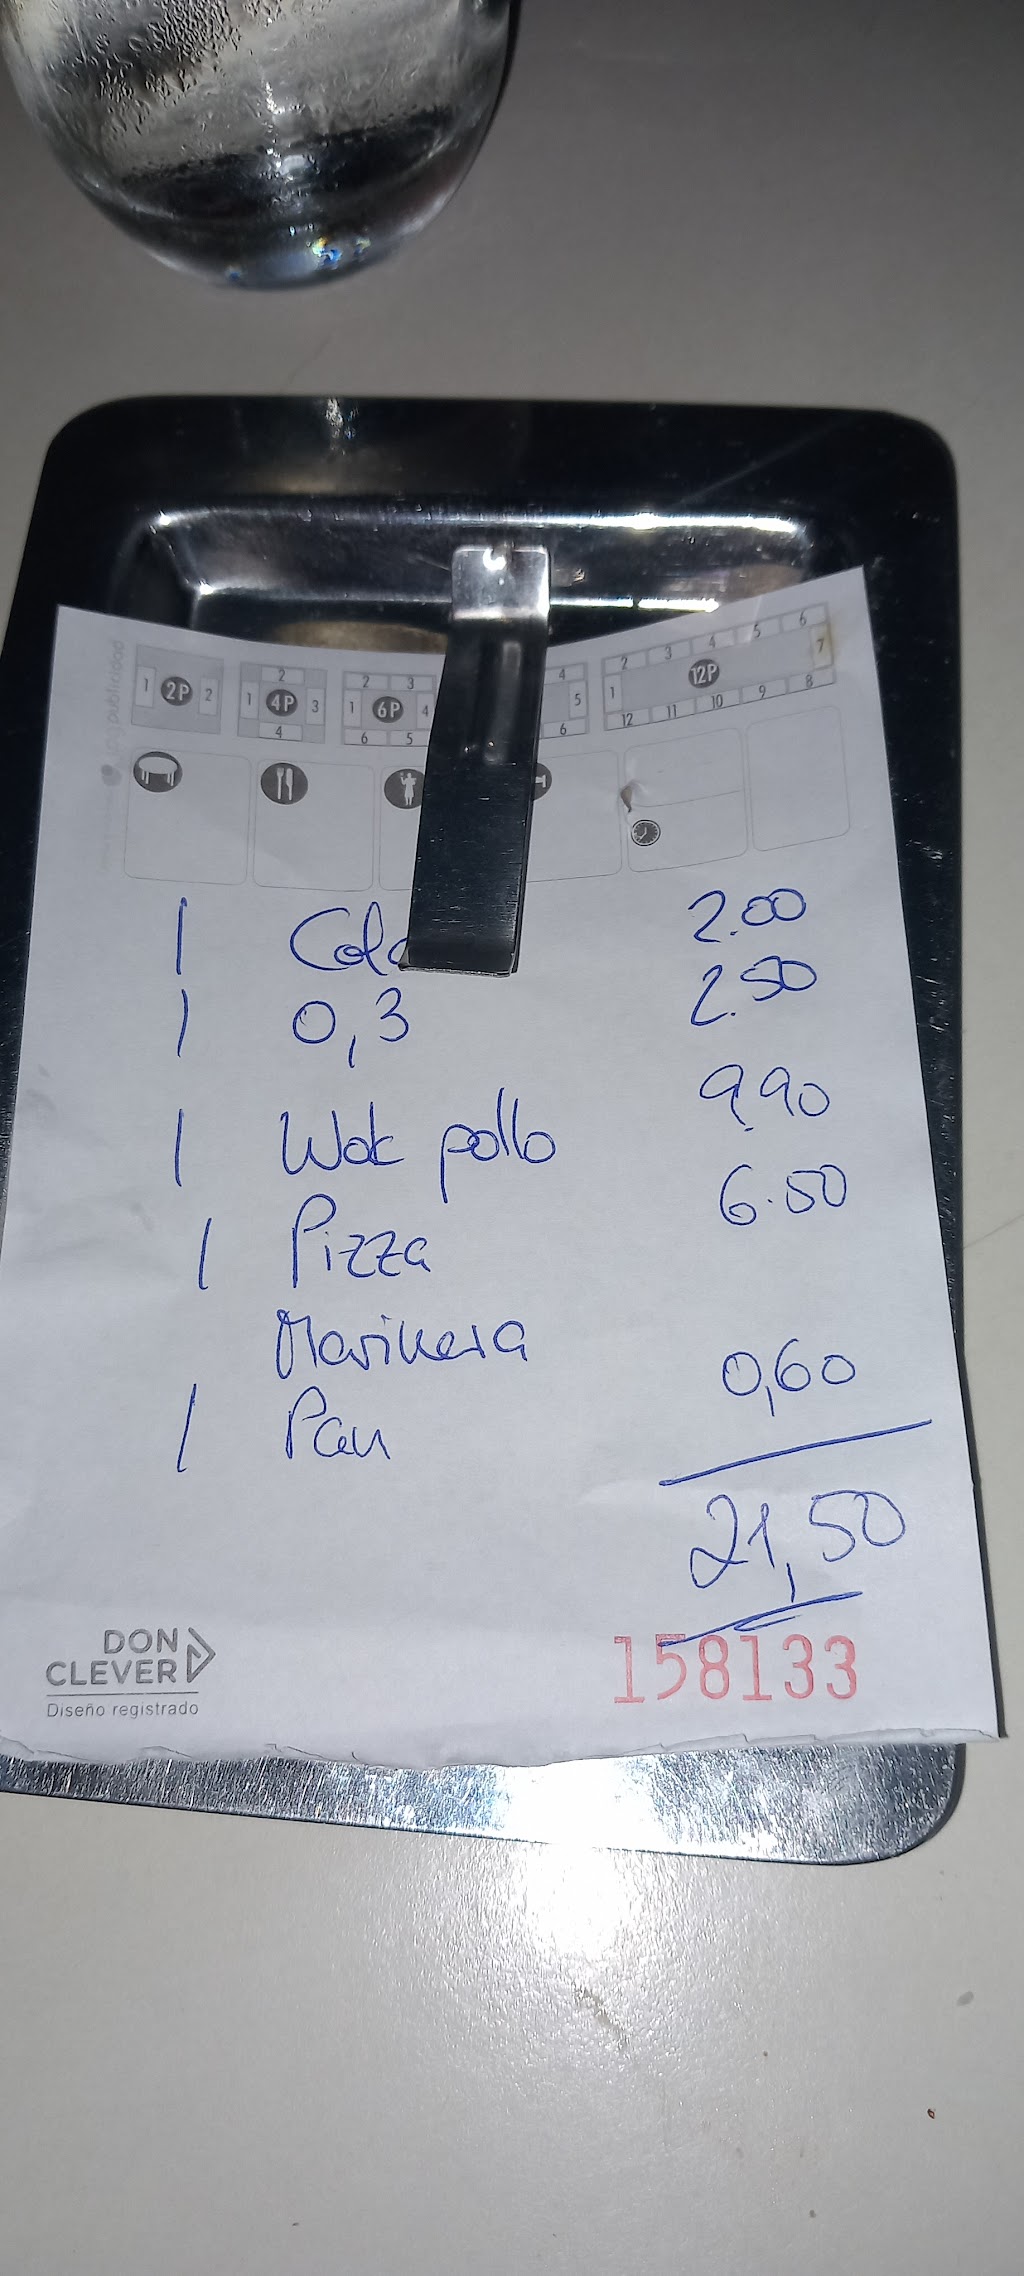 1 2P 2
2
1 4P 3
4
2 3
1 6P 4
6 5
4
5
6
2 3 4 5 6
1 12P 7
12 11 10 9 8
publicidad
1 Cola 2.00
1 0,3 2.50
1 Wok pollo 9.90
1 Pizza 6.50
Marinera
1 Pan 0,60
21,50
DON
CLEVER
Diseño registrado
158133